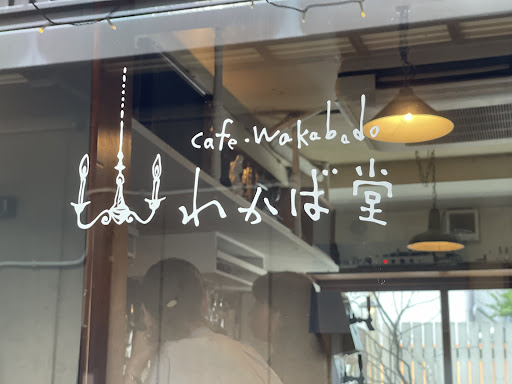 cafe・wakabado
わかば堂